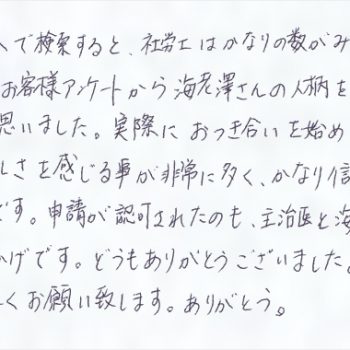 で検索すると、社労士はかなりの数がみ
お客様アンケートから海老澤さんの人柄を
思いました。実際におつき合いを始め
しさを感じる事が非常に多く、かなり信
です。申請が認可されたのも、主治医と海
かげです。どうもありがとうございました。
くお願い致します。ありがとう。